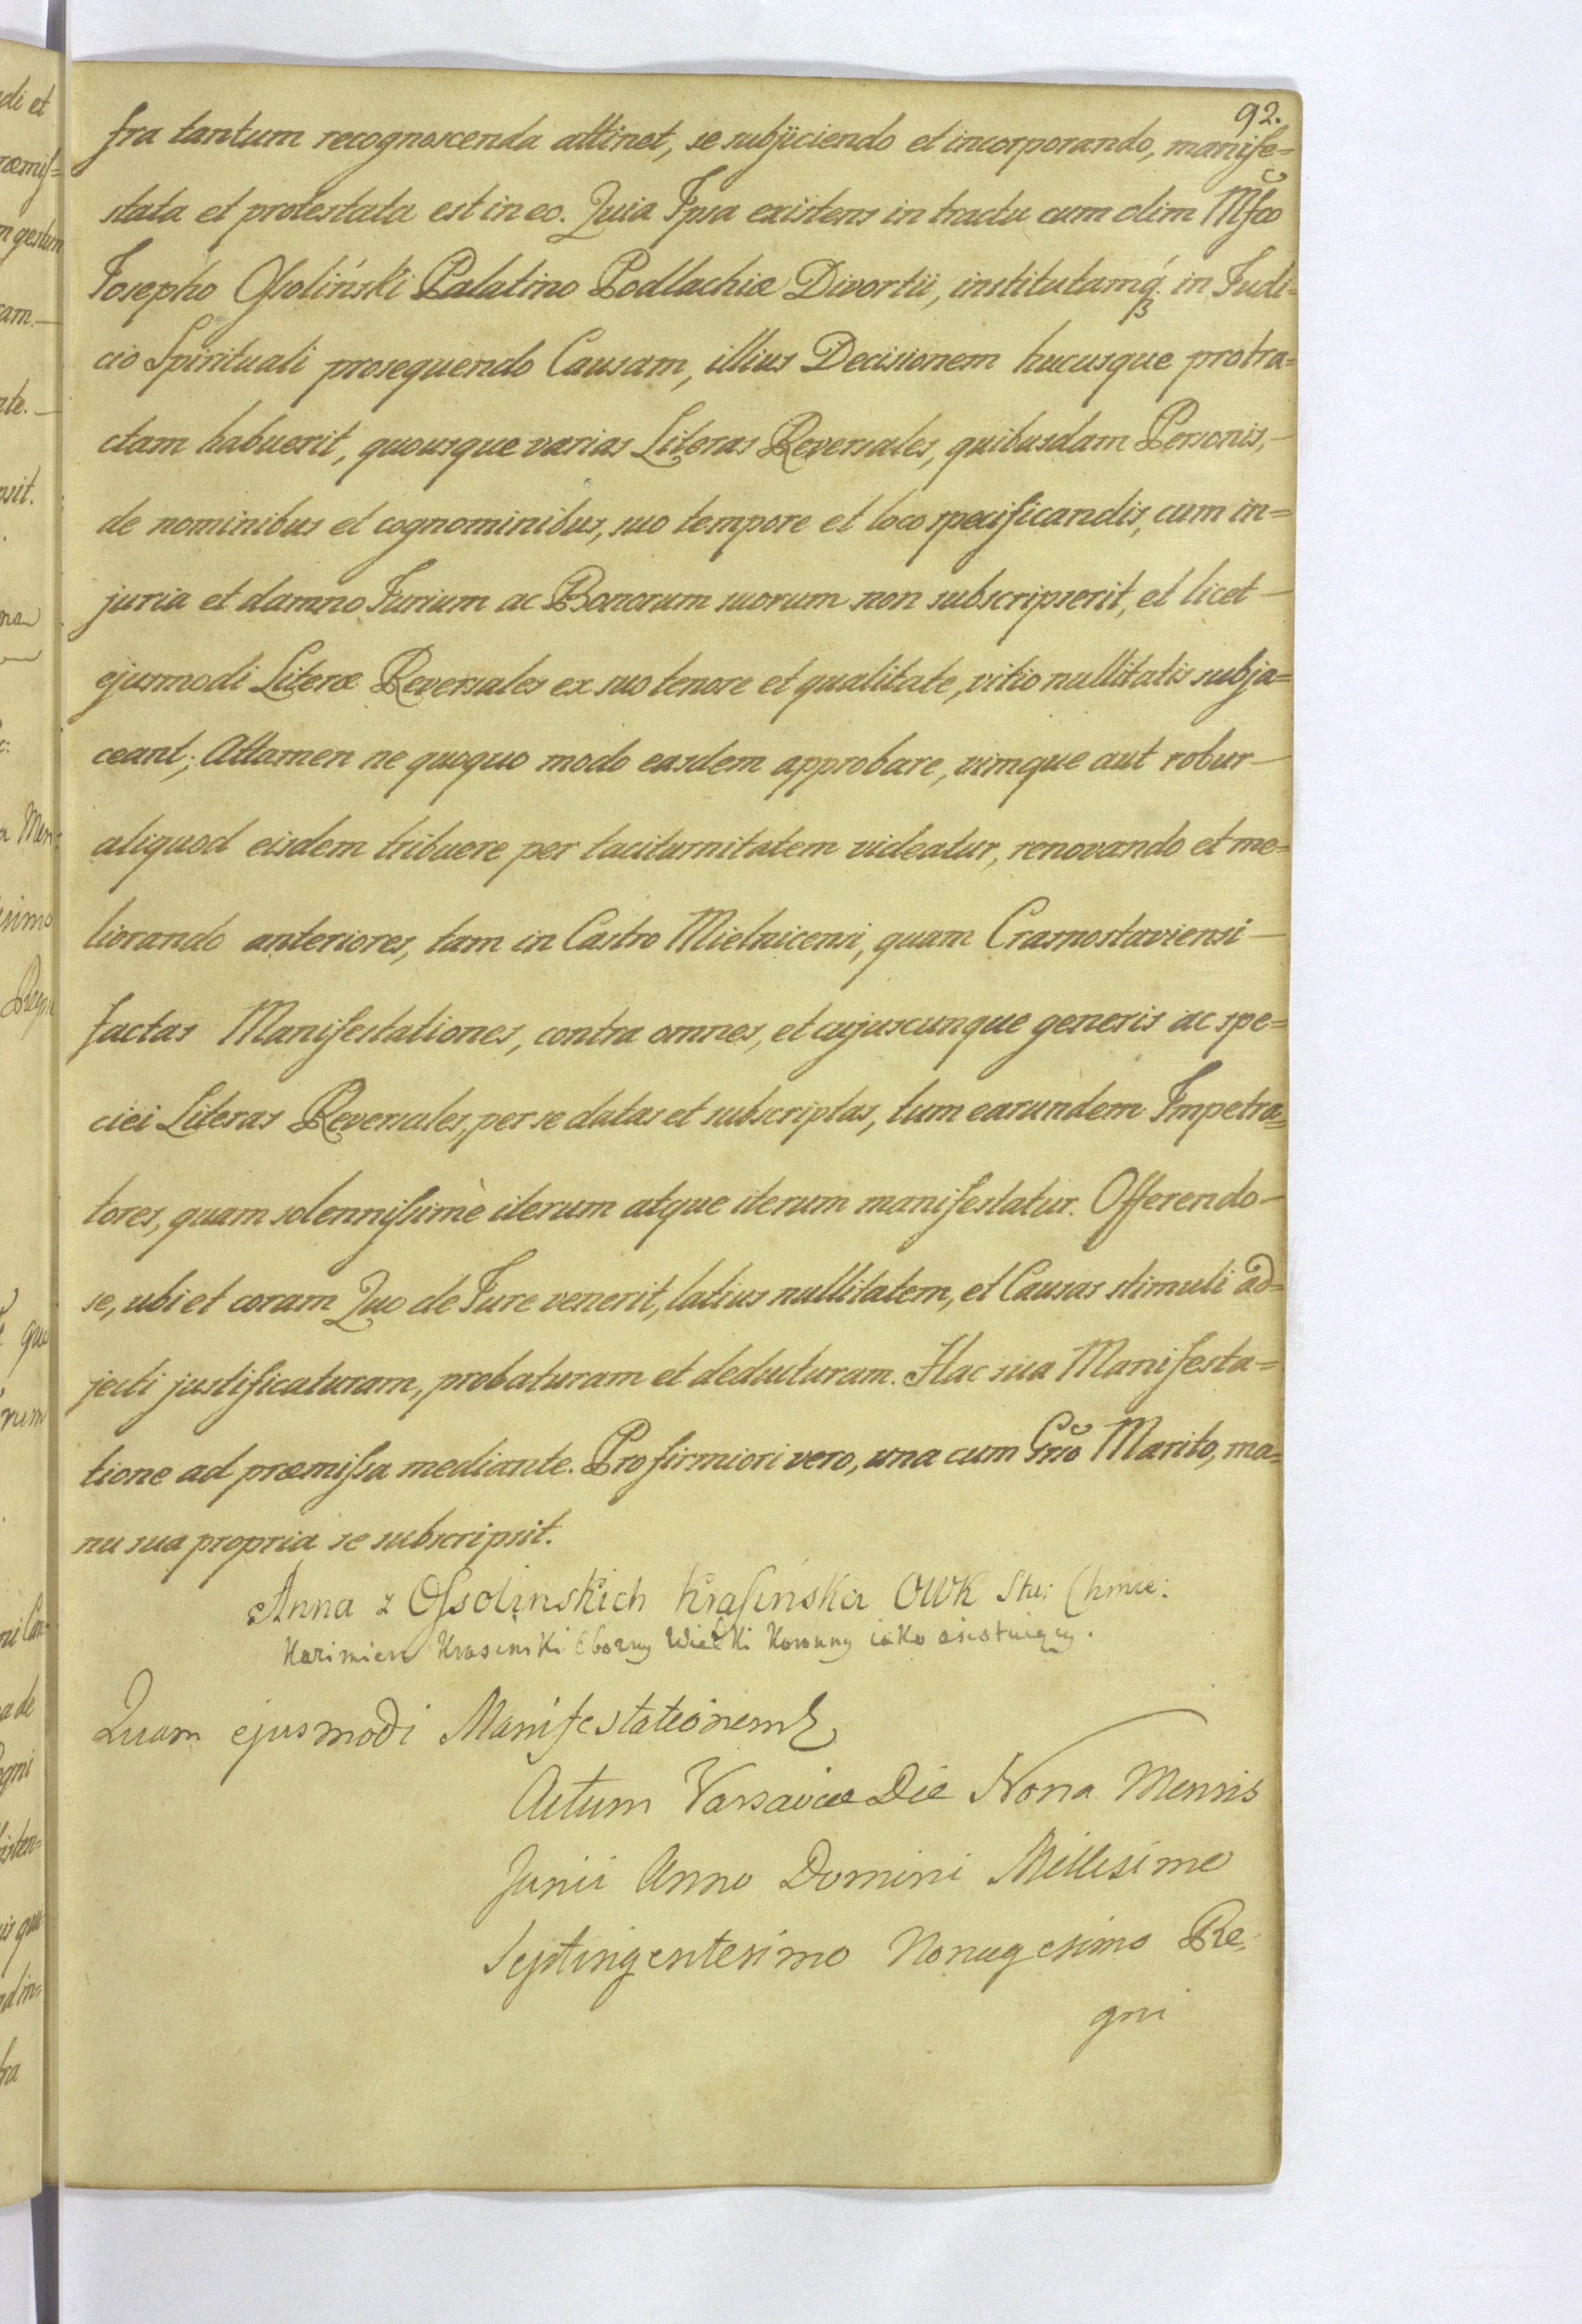 92.
fra tantum recognoscenda attinet, se subjiciendo et incorporando, manife=
stata et protestata est in eo. Quia Ipsa existens in tractu cum olim Mfco
Josepho Ossoliński Palatino Podlachiæ Divortii, institutamq́ in Judi=
cio Spirituali prosequendo Causam, illius Decisionem hucusque protra=
ctam habuerit, quousque varias Literas Reversales, quibusdam Personis,
de nominibus et cognominibus, suo tempore et loco specificandis, cum in=
juria et damno Jurium ac Bonorum suorum non subscripserit, et licet
ejusmodi Literæ Reversales ex suo tenore et qualitate, vitio nullitatis subja=
ceant; Attamen ne quoquo modo easdem approbare, vimque aut robur
aliquod eisdem tribuere per taciturnitatem videatur, renovando et me=
liorando anteriores, tam in Castro Mielnicensi, quam Crasnostaviensi
factas Manifestationes, contra omnes, et cujuscunque generis ac spe=
ciei Literas Reversales, per se datas et subscriptas, tum earundem Impetra=
tores, quam solennissimè iterum atque iterum manifestatur. Offerendo
se, ubi et coram Quo de Jure venerit, latius nullitatem, et Causas stimuli ad=
jecti justificaturam, probaturam et deducturam. Hac sua Manifesta=
tione ad præmissa mediante. Pro firmiori vero, una cum Gno Marito, ma=
nu sua propria se subscripsit.
Anna z Ossolinskich Krasińska OWK Sta: Chmie:
Kazimierz Krasinski Obozny Wielki Koronny iako asistuiący.
Quam ejusmodi Manifestationem
Actum Varsaviæ Die Nona Mensis
Junii Anno Domini Millesimo
Septingentesimo Nonagesimo Re=
gni